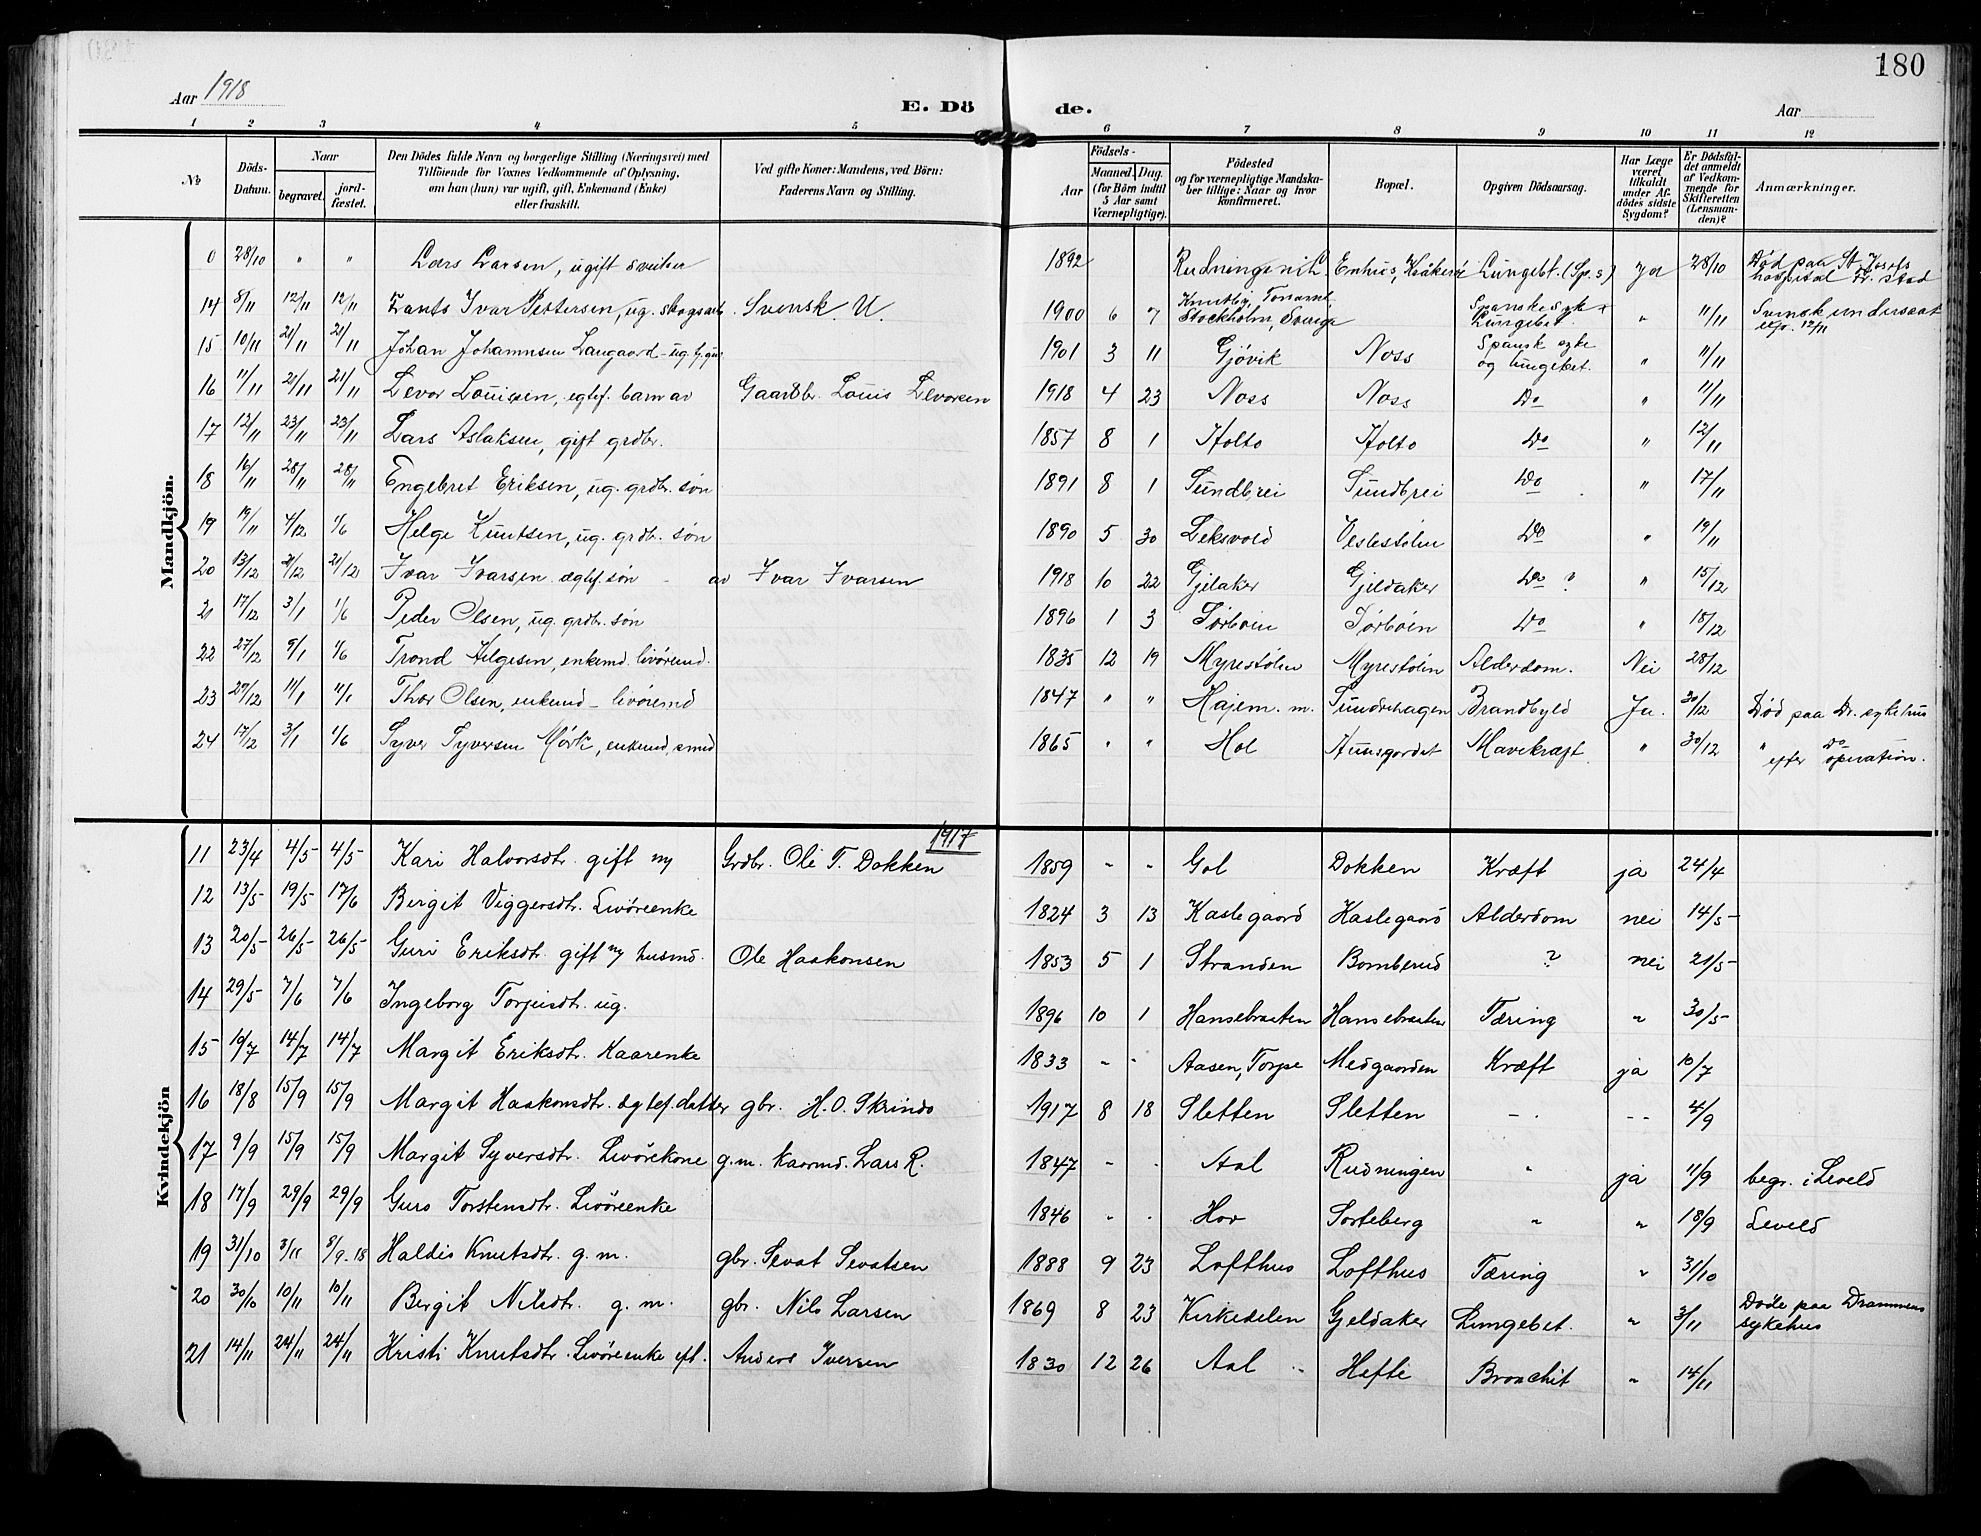 180
Aar 1918
E. Dö de.
Aar
1 2 3 4 5 6 7 8 9 10 11 12
№
Döds-Datum.
Naar
begravet.
jord-fæstet.
Den Dödes fulde Navn og borgerlige Stilling (Næringsvei) med
Tilföiende for Voxnes Vedkommende af Oplysning,
om han (hun) var ugift, gift, Enkemand (Enke)
eller fraskilt.
Ved gifte Koner: Mandens, ved Börn:
Faderens Navn og Stilling.
Födsels-
Aar
Maaned. Dag.
(for Börn indtil
5 Aar samt
Værnepligtige).
Födested
og for værnepligtige Mandska-
ber tillige: Naar og hvor
konfirmeret.
Bopæl.
Opgiven Dödsaarsag.
Har Læge
været
tilkaldt
under Af-
dödes sidste
Sygdom?
Er Dödsfal-
det anmeldt
af Vedkom-
mende for
Skifteretten
(Lensman-
den)?
Anmærkninger.
Mandkjön.
0 28/10 " " Lars Larsen, ugift sveitser 1892 Rudningen i H. Enhus, Lungebt. (Sp. s) Ja 28/10 Död paa St. Josefs hospital Dr. stad
14 8/11 12/11 12/11 Frants Ivar Pettersen, ug. skogsarb. Svensk U. 1900 6 7 Stockholm, Sverige Spanskesyk Lungebet. " 11/11 Svensk undersaat 12/11
15 10/11 21/11 21/11 Johan Johannsen Langaard - ug. 1901 3 11 Gjövik Noss Spansk syke og lungebet. " 11/11
16 11/11 21/11 21/11 Levor Louissen, egtef. barn av Gaardbr. Louis Levorsen 1918 4 23 Noss Noss Do " 11/11
17 12/11 23/11 23/11 Lars Aslaksen, gift grdbr. 1857 8 1 Holto Holto Do " 12/11
18 16/11 28/11 28/11 Engebret Eriksen, ug. grdbr. sön 1891 8 1 Sundbrei Sundbrei Do " 17/11
19 19/11 4/12 1/6 Helge Knutsen, ug. grdbr. sön 1890 5 30 Leksvold Veslestölen Do " 19/11
20 13/12 21/12 21/12 Ivar Ivarsen ægtef. sön - av Ivar Ivarsen 1918 10 22 Gjelaker Gjeldaker Do ? " 15/12
21 17/12 3/1 1/6 Peder Olsen, ug. grdbr. sön 1896 1 3 Sörböen Sörböen Do " 18/12
22 27/12 9/1 1/6 Trond Helgesen, enkemd. livöremd. 1835 12 19 Myrestölen Myrestölen Alderdom. Nei 28/12
23 29/12 11/1 11/1 Thor Olsen, enkemd - livöremd 1847 " " Hajem. m. Sundrehagen Brandbyld Ja. 30/12 Död paa Dr. sykehus
24 17/12 3/1 1/6 Syver Syversen Mörk, enkemd, smed 1865 " " Hol Mavekræft " 30/12 " Do efter operation.
Kvindekjön
1917
11 23/4 4/5 4/5 Kari Halvorsdtr. gift m Grdbr. Ole T. Dokken 1859 - - Gol Dokken Kræft ja 24/4
12 13/5 19/5 17/6 Birgit Viggersdtr. Livöreenke 1824 3 13 Haslegaard Haslegaard Alderdom nei 14/5
13 20/5 26/5 26/5 Guri Eriksdtr. gift m husmd. Ole Haakonsen 1853 5 1 Stranden Bomberud ? nei 21/5
14 29/5 7/6 7/6 Ingeborg Torjeisdtr. ug. 1896 10 1 Hansebraaten Hansebraaten Tæring " 30/5
15 10/7 14/7 14/7 Margit Eriksdtr. Kaarenke 1833 - - Aasen, Torpe Medgaarden Kræft ja 10/7
16 18/8 15/9 15/9 Margit Haakonsdtr. ægtef. datter gbr. H. O. Skrindo 1917 8 18 Sletten Sletten - - - 4/9
17 9/9 15/9 15/9 Margit Syversdtr. Livörekone g. m. kaarmd. Lars R. 1847 - - Aal Rudningen " ja 11/9 begr. i Leveld
18 17/9 29/9 29/9 Guro Torstensdtr. Livöreenke 1846 - - Hov Sorteberg " " 18/9 Leveld
19 31/10 3/11 8/9-18 Haldis Knutsdtr. g. m. gbr. Sevat Sevatsen 1888 9 23 Lofthus Lofthus Tæring " 31/10
20 30/10 10/11 10/11 Birgit Nilsdtr. g. m. gbr. Nils Larsen 1869 8 23 Kirkedelen Gjeldaker Lungebet. " 3/11 Döde paa Drammens sykehus
21 14/11 24/11 24/11 Kristi Knutsdtr. Livöreenke eft. Anders Iversen 1830 12 26 Aal Hefte Bronchit " 14/11